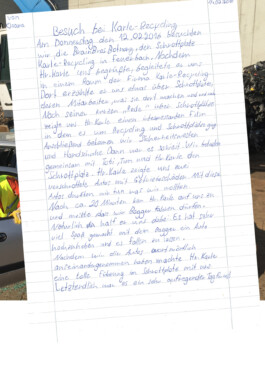 Besuch bei Karle-Recycling
Am Donnerstag den 12.02.2016 besuchten
wir, die den Schrottplatz
Karle-Recycling in Feuerbach. Nachdem
Hr. Karle uns begrüßte, begleitete er uns
in einem Raum der Firma Karle-Recycling.
Dort erzählte er uns etwas über Schrottplätze,
dessen Mitarbeiter, was sie dort machen und
Nach seiner breiten Rede über Schrottplätze,
zeigte uns Hr. Karle einen interessanten Film,
in dem es um Recycling und Schrottplätze ging.
Anschließend bekamen wir Sicherheitswesten
und Handschuhe. Dann war es soweit. Wir liefen
gemeinsam mit Tom und Hr. Karle den
Schrottplatz. Hr. Karle zeigte uns
verschrottete Autos mit
Autos durften wir
Nach ca. 20 Minuten kam Hr. Karle auf uns zu
und meinte dass wir Bagger fahren dürfen.
Natürlich da half er uns dabei. Es hat sehr
viel Spaß gemacht mit dem Bagger ein Auto
hochzuheben und es fallen zu lassen.
Nachdem wir die Autos
auseinandergenommen haben machte Hr. Karle
eine tolle Führung am Schrottplatz mit uns.
Letztendlich war es ein sehr aufregender Tag